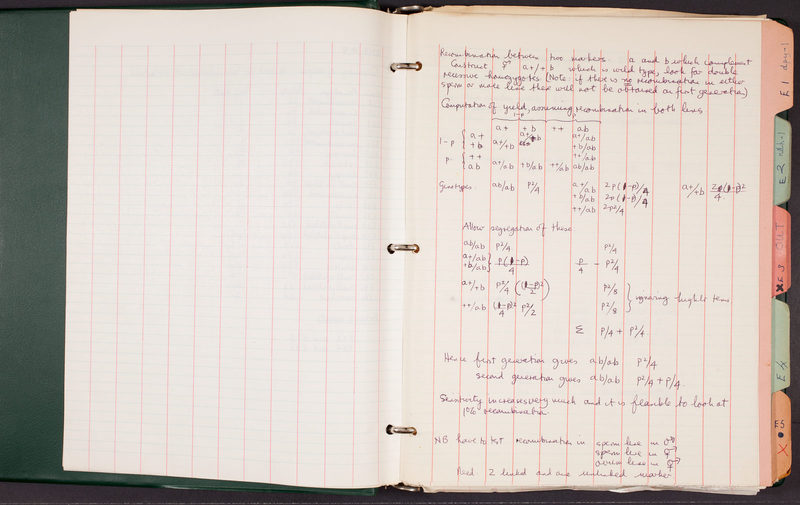 Recombination between two markers a and b which complement
Construct ⚥ a+/+b which is wild type, look for double
recessive homozygotes (Note if there is no recombination in either
sperm or ova line these will not be obtained on first generation)
Computation of yield, assuming recombination in both lines
1-p p
a+ +b ++ ab
1-p { a+ a+/+b a+/ab
+b a+/+b +b/ab
p { ++ ++/ab
ab a+/ab +b/ab ++/ab ab/ab
Genotypes. ab/ab p²/4 a+/ab 2p(1-p)/4 a+/+b 2(1-p)²/4
+b/ab 2p(1-p)/4
++/ab 2p²/4
Allow segregation of these
ab/ab p²/4 p²/4
a+/ab }
+b/ab } p(1-p)/4 p/4 - p²/4
a+/+b p²/4 ((1-p)²/2) p²/8 } ignoring higher terms
++/ab (1-p)²/4 p²/2 p²/8
Σ p/4 + p²/4
Hence first generation gives ab/ab p²/4
second generation gives ab/ab p²/4 + p/4.
Sensitivity increases very much and it is feasible to look at
1% recombination.
NB have to test recombination in sperm line in ♂
sperm line in ⚥
ovum line in ⚥
Need 2 linked and one unlinked marker
E 1 day-1
E 2
E 3
E 4
E5
X